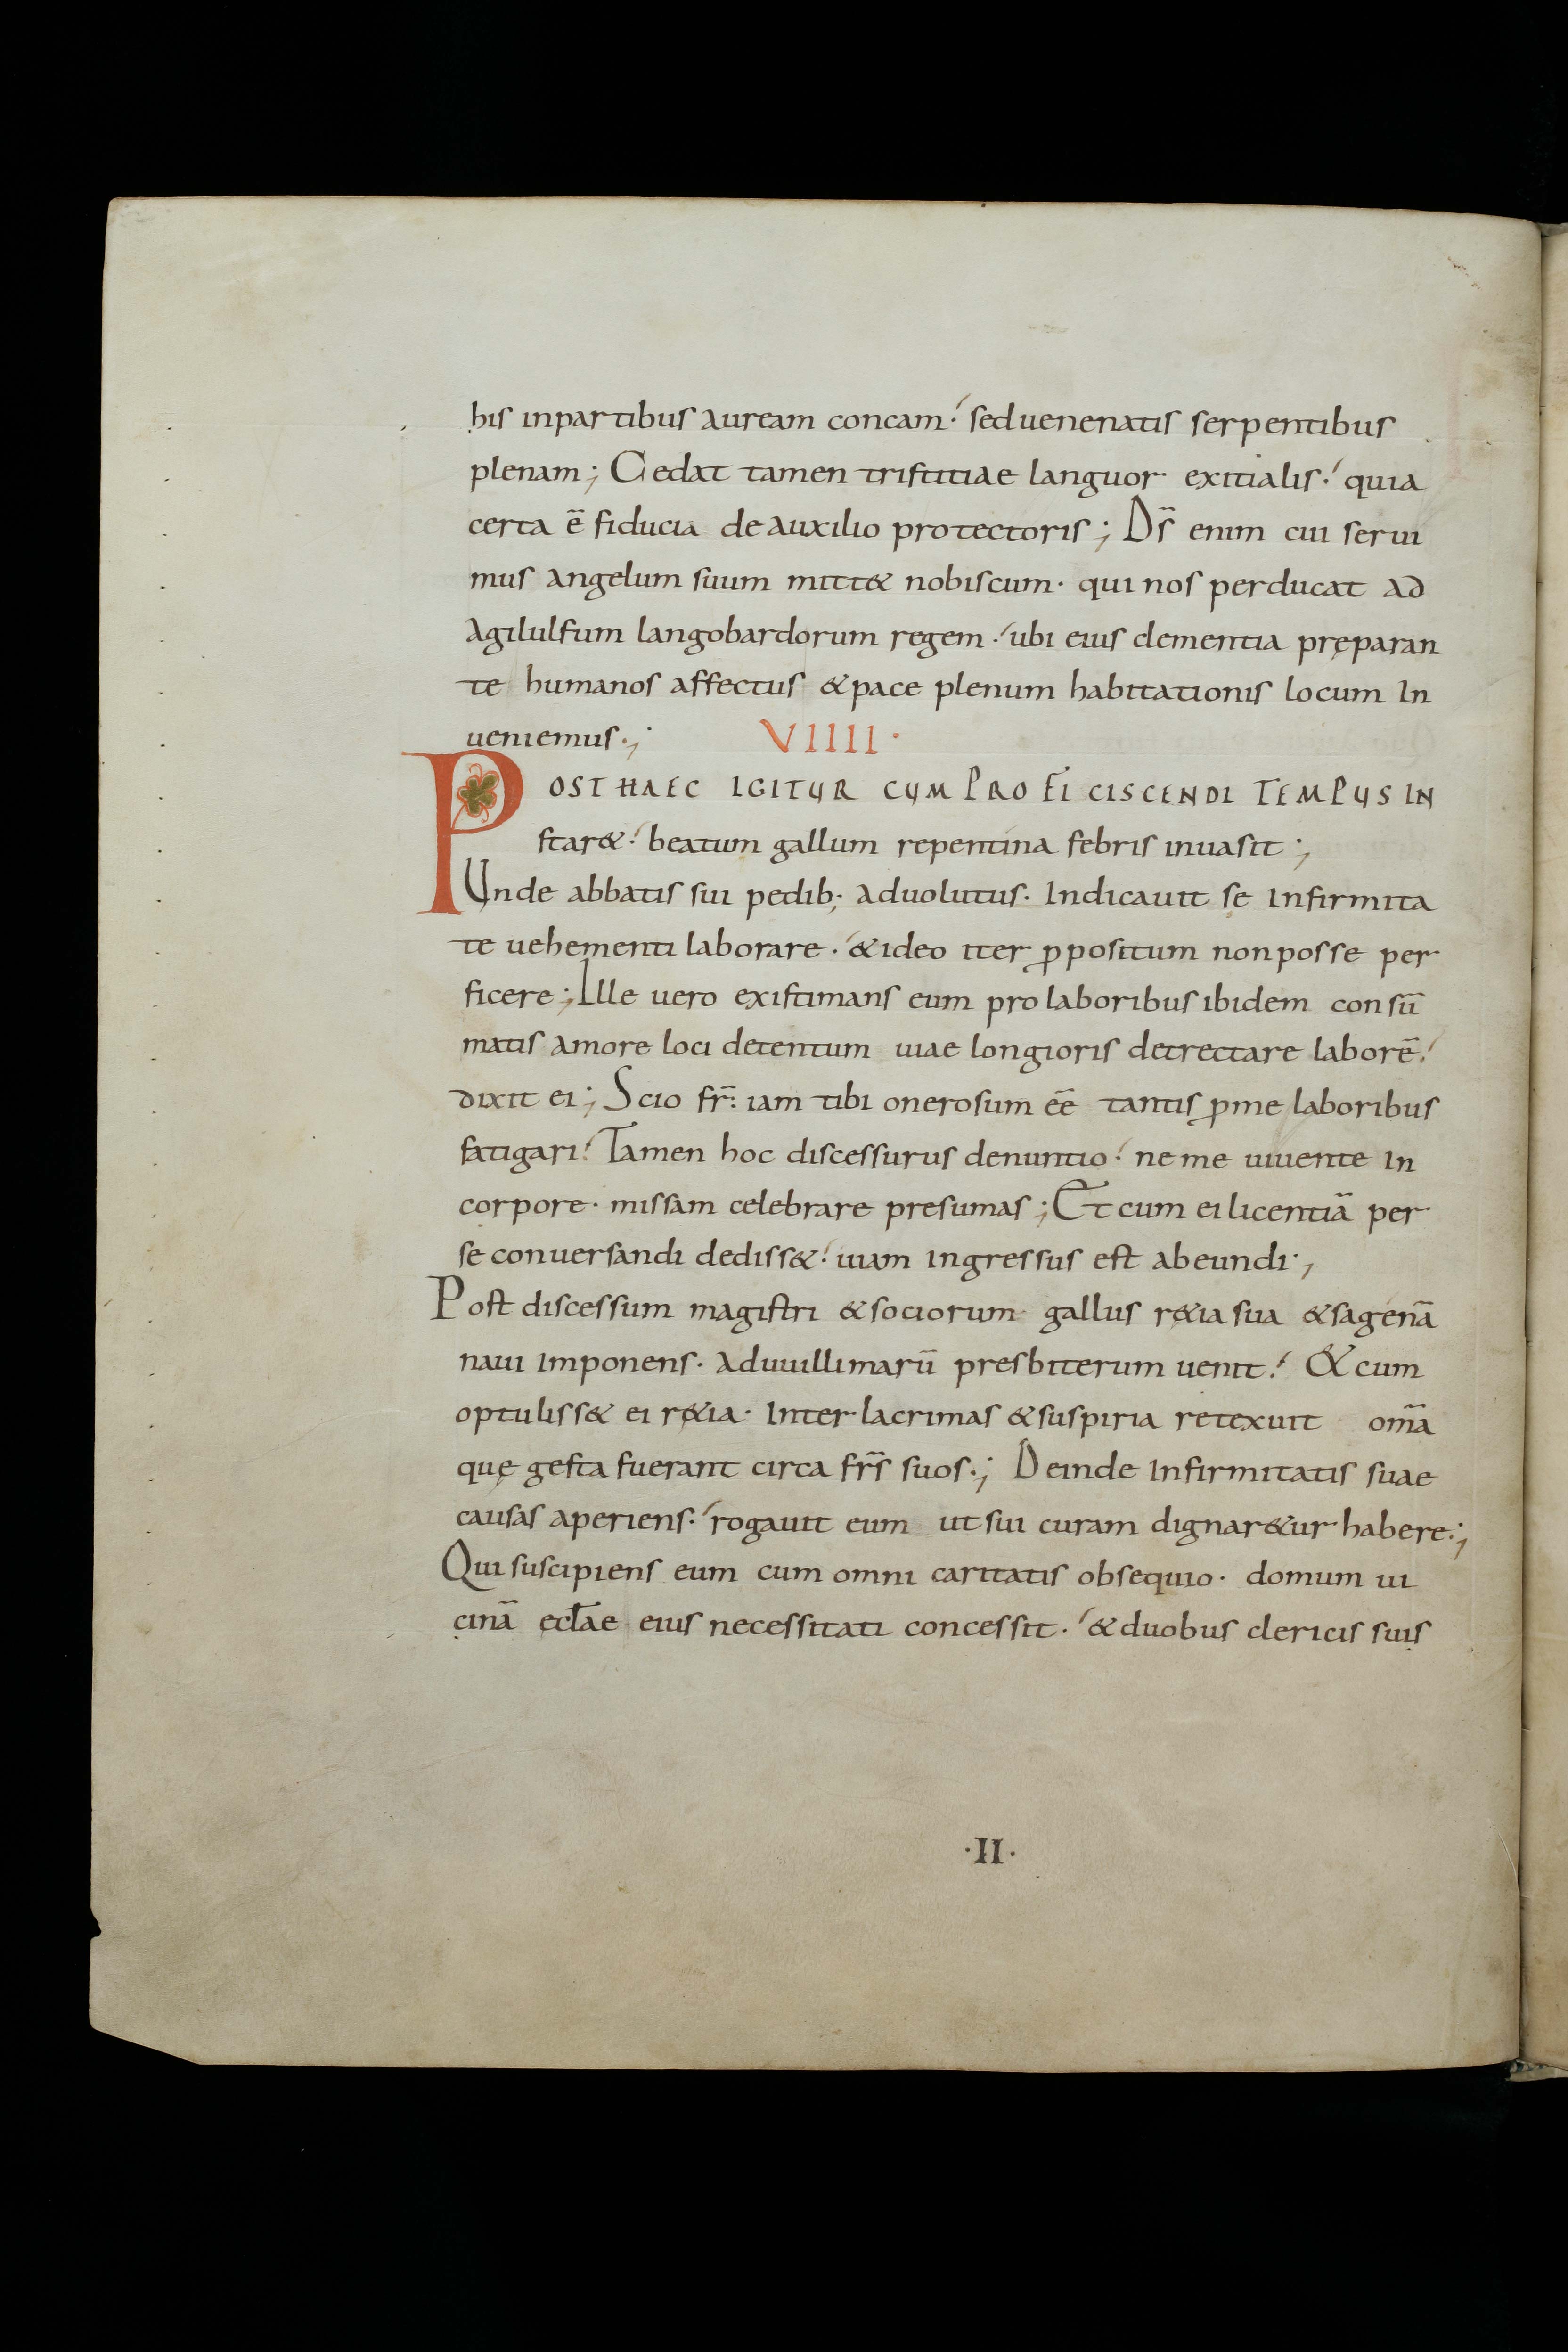 his inpartibus auream concam. seduenenatis serpentibus
plenam; Cedat tamen tristitiae languor exitialis. quia
certa ē fiducia deauxilio protectoris; Ds̄ enim cui serui
mus angelum suum mitt& nobiscum. qui nos perducat ad
agilulfum langobardorum regem. ubi eius clementia pręparan
te humanos affectus &pace plenum habitationis locum In
ueniemus.; VIIII.
POST HAEC IGITUR CUM PROFICISCENDI TEMPUS IN
star&. beatum gallum repentina febris inuasit;
Unde abbatis sui pedib; aduolutus. Indicauit se Infirmita
te uehementi laborare. &ideo iter ꝓpositum nonposse per
ficere; Ille uero existimans eum pro laboribus ibidem consū
matis amore loci detentum uiae longioris detrectare laborē.
dixit ei; Scio fr̄. iam tibi onerosum eē tantis ꝓme laboribus
fatigari. Tamen hoc discessurus denuntio. ne me uiuente In
corpore. missam celebrare presumas; Et cum ei licentiā per
se conuersandi dediss&. uiam Ingressus est abeundi;
Post discessum magistri &sociorum gallus r&ia sua &sagenā
naui Imponens. aduuillimarū presbiterum uenit. & cum
optuliss& ei r&ia. Inter lacrimas &suspiria retexuit om̄a
quę gesta fuerant circa fr̄s suos.; Deinde Infirmitatis suae
causas aperiens. rogauit eum ut sui curam dignar&ur habere.;
Qui suscipiens eum cum omni caritatis obsequio. domum ui
cinā ecƚae eius necessitati concessit. & duobus clericis suis
.II.